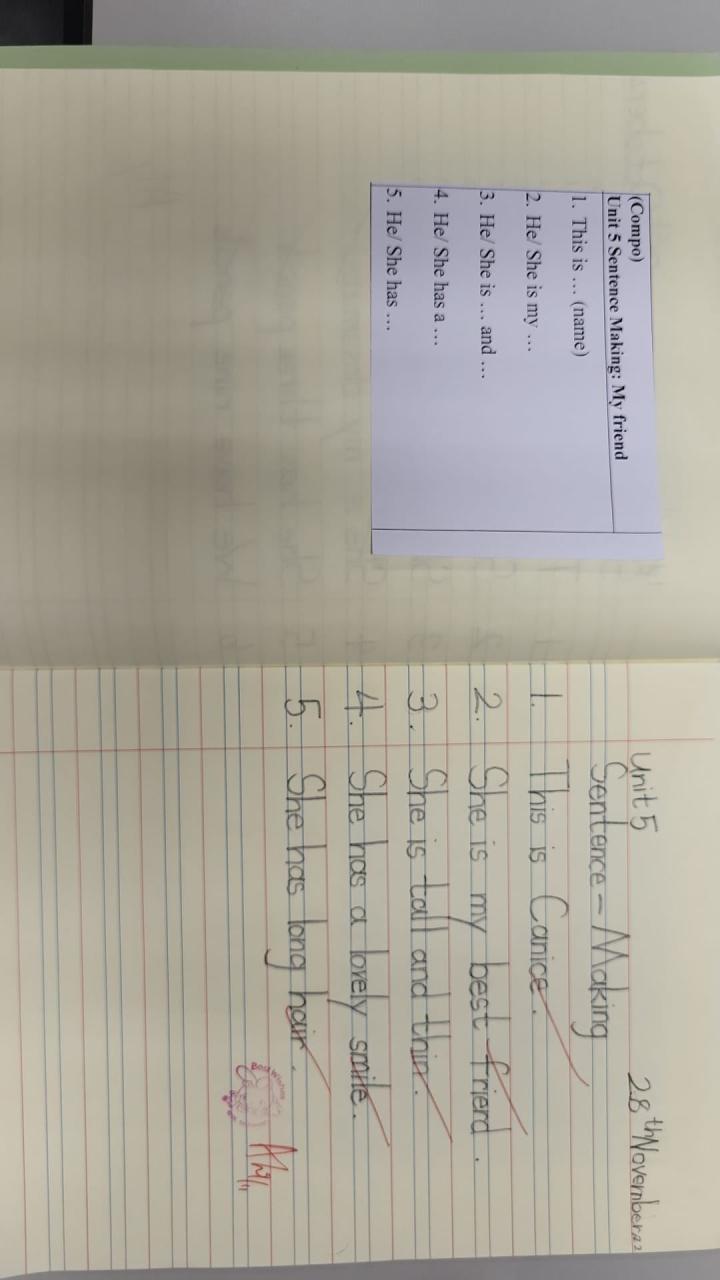 (Compo)
Unit 5 Sentence Making: My friend
1. This is … (name)
2. He/ She is my …
3. He/ She is … and …
4. He/ She has a …
5. He/ She has …
Unit 5 28th November
Sentence – Making
1. This is Canice.
2. She is my best friend.
3. She is tall and thin.
4. She has a lovely smile.
5. She has long hair.